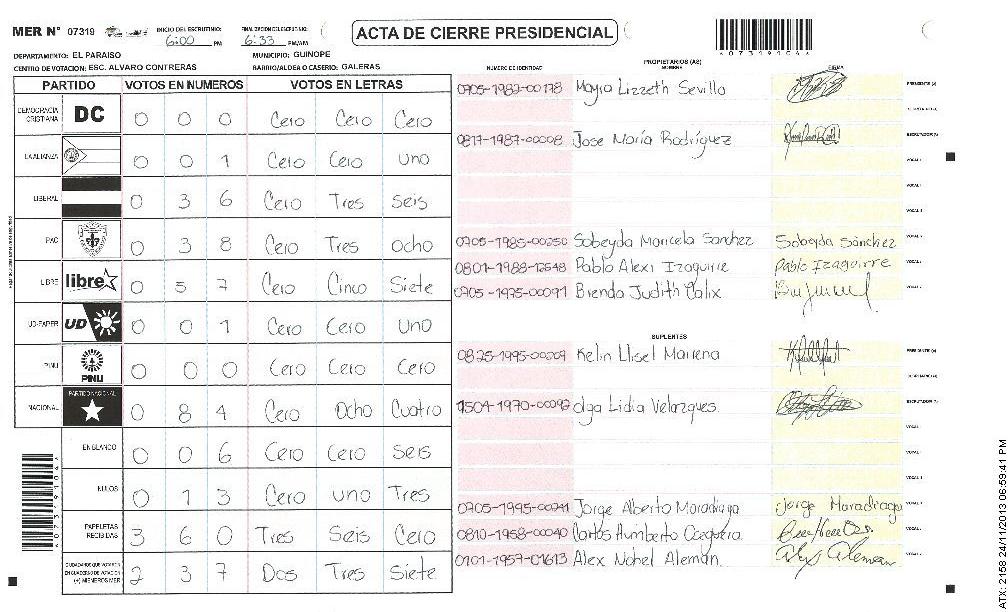 MER Nº 07319 INICIO DEL ESCRUTINIO: 6:00 PM FINALIZACION DEL ESCRUTINIO: 6:33 PM/AM
ACTA DE CIERRE PRESIDENCIAL
DEPARTAMENTO: EL PARAISO MUNICIPIO: GUINOPE
CENTRO DE VOTACION: ESC. ALVARO CONTRERAS BARRIO/ALDEA O CASERIO: GALERAS
PARTIDO VOTOS EN NUMEROS VOTOS EN LETRAS
DEMOCRACIA CRISTIANA DC 0 0 0 Cero Cero Cero
LA ALIANZA 0 0 1 Cero Cero uno
LIBERAL 0 3 6 Cero Tres seis
PAC 0 3 8 Cero Tres ocho
LIBRE libre 0 5 7 Cero Cinco Siete
UD-FAPER UD 0 0 1 Cero Cero uno
PINU PINU 0 0 0 Cero Cero Cero
NACIONAL PARTIDO NACIONAL 0 8 4 Cero Ocho Cuatro
EN BLANCO 0 0 6 Cero Cero Seis
NULOS 0 1 3 Cero uno Tres
PAPELETAS RECIBIDAS 3 6 0 Tres Seis Cero
CIUDADANOS QUE VOTARON EN CUADERNO DE VOTACION (+) MIEMBROS MER 2 3 7 Dos Tres Siete
PROPIETARIOS (AS)
NUMERO DE IDENTIDAD NOMBRE FIRMA
0705-1982-00178 Mayra Lizzeth Sevilla PRESIDENTE (A)
SECRETARIO (A)
0817-1987-00008 Jose María Rodríguez ESCRUTADOR (A)
VOCAL I
0705-1985-00250 Sobeyda Maricela Sanchez Sobeyda Sánchez
0801-1988-12548 Pablo Alexi Izaguirre Pablo Izaguirre
0705-1975-00091 Brenda Judith Calix
SUPLENTES
0825-1995-00209 Kelin Llisel Mairena PRESIDENTE (A)
SECRETARIO (A)
1504-1970-00092 olga Lidia Velazques ESCRUTADOR (A)
VOCAL I
0705-1995-00241 Jorge Alberto Maradiaga Jorge Maradiaga
0810-1958-00040 Carlos Humberto
0101-1957-01613 Alex Nohel Alemán Alex Aleman
*07319106*
ATX: 2158 24/11/2013 06:59:41 PM